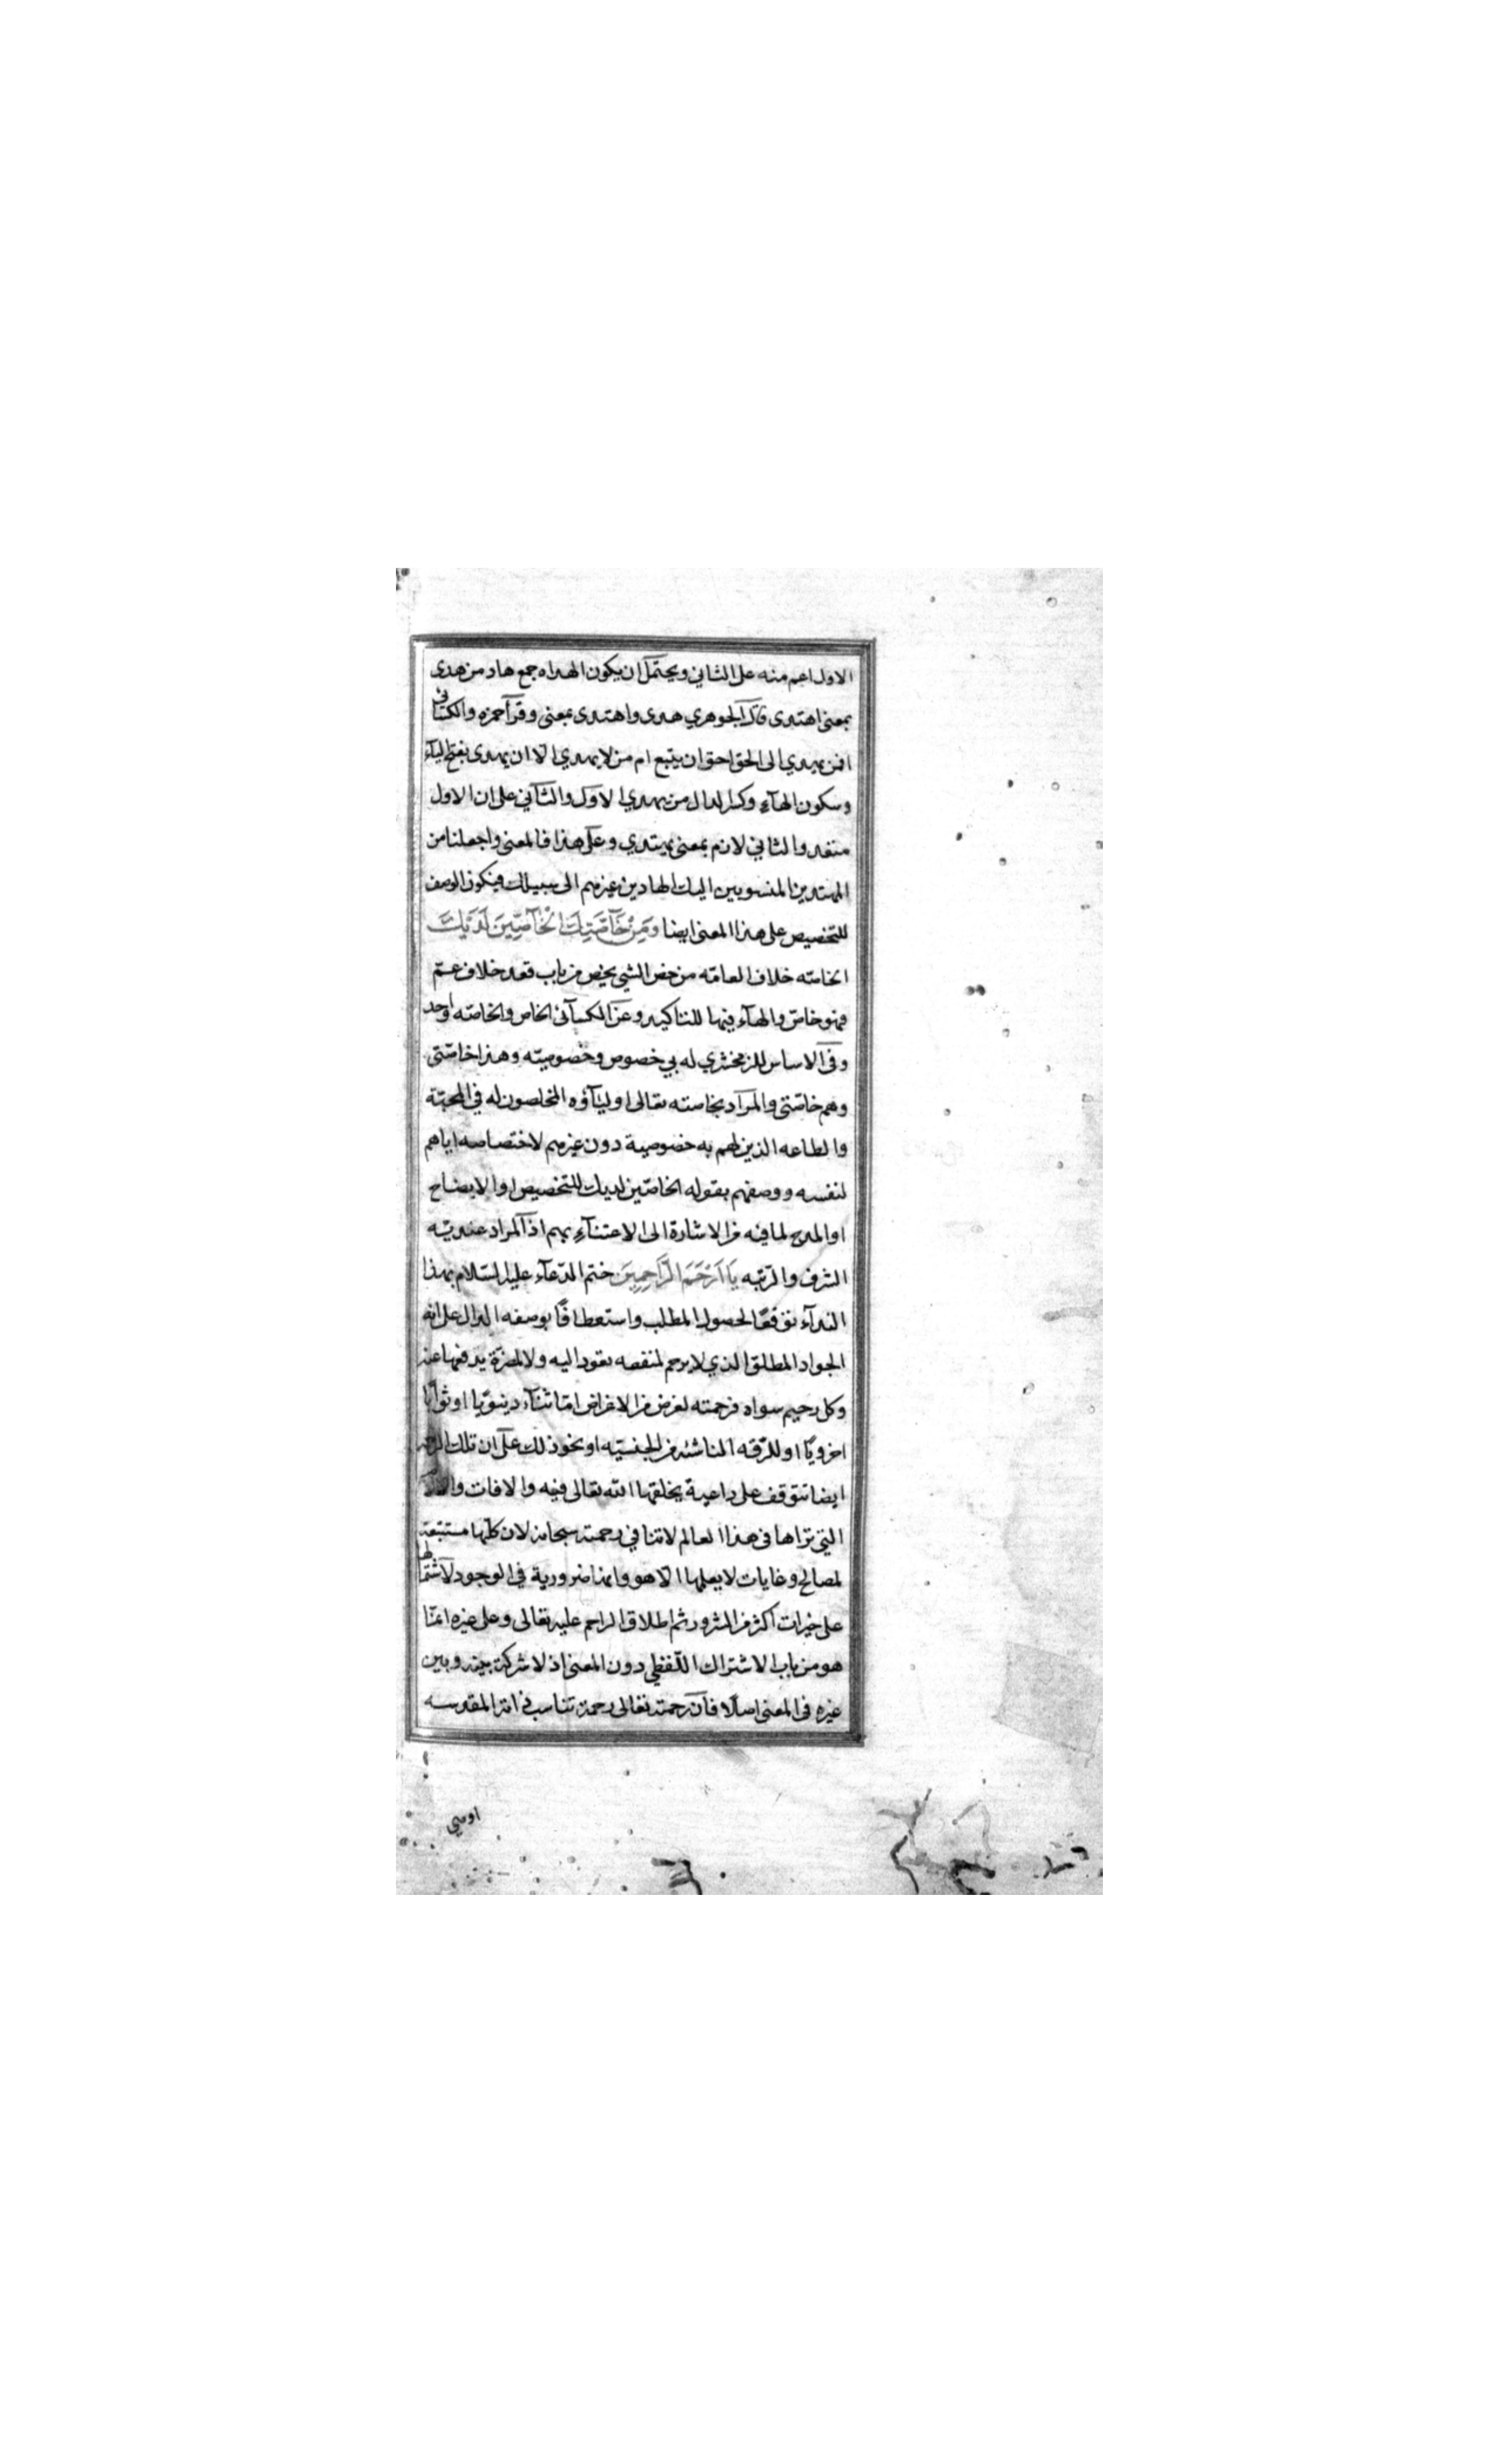 الاول اعم منه على الثاني ويحتمل ان يكون الهداه جمع هاد من هدى
بمعنى اهتدى قال الجوهري هدى واهتدى بمعنى وقرأ حمزه والكسائي
افمن يهدي الى الحق احق ان يتبع ام من لا يهدي الا ان يهدى بفتح اليآء
وسكون الهآء وكسر الدال من يهدي الاول والثاني على ان الاول
متعد والثاني لازم بمعنى يهتدي وعلى هذا فالمعنى واجعلنا من
المهتدين المنسوبين اليك الهادين غيرهم الى سبيلك فيكون الوصف
للتخصيص على هذا المعنى ايضا وَمِنْ خَآصَّتِكَ الْخَآصِّينَ لَدَيْكَ
الخاصه خلاف العامه من خص الشي يخص من باب قعد خلاف عمّ
فهو خاص والهآء فيها للتاكيد وعن الكسآئي الخاص والخاصه واحد
وفي الاساس للزمخشري له بي خصوص وخصوصيته وهذا خاصّتي
وهم خاصّتي والمراد بخاصته تعالى اوليآؤه المخلصون له في المحبّة
والطاعه الذين لهم به خصوصية دون غيرهم لاختصاصه اياهم
لنفسه ووصفهم بقوله الخاصّين لديك للتخصيص او الايضاح
او المدح لما فيه من الاشارة الى الاعتنآء بهم اذ المراد عنديّه
الشرف والرتبه يَا اَرْحَمَ الرَّاحِمِينَ ختم الدعآء عليه السّلام بهذا
الندآء توقعًا لحصول المطلب واستعطافًا بوصفه الدال على انه
الجواد المطلق الذي لا يرحم لمنفعه تعود اليه ولا لمضرّة يدفعها عنه
وكل رحيم سواه فرحمته لغرض من الاغراض امّا ثنآء دنيويّا او ثوابًا
اخرويًا او للرّقه الناشئه من الجنسيّه او نحو ذلك على ان تلك الرحمه
ايضا تتوقف على داعية يخلقها الله تعالى فيه والافات والالآم
التي نراها في هذا العالم لا تنافي رحمته سبحانه لان كلّها مستتبعة
لمصالح وغايات لا يعلمها الّا هو وانها ضرورية في الوجود لاشتمالها
على خيرات اكثر من الشرور ثم اطلاق الراحم عليه تعالى وعلى غيره انمّا
هو من باب الاشتراك اللّفظي دون المعنى اذ لا شركة بينه وبين
غيره في المعنى اصلًا فانّ رحمته تعالى رحمة تناسب ذاته المقدسه